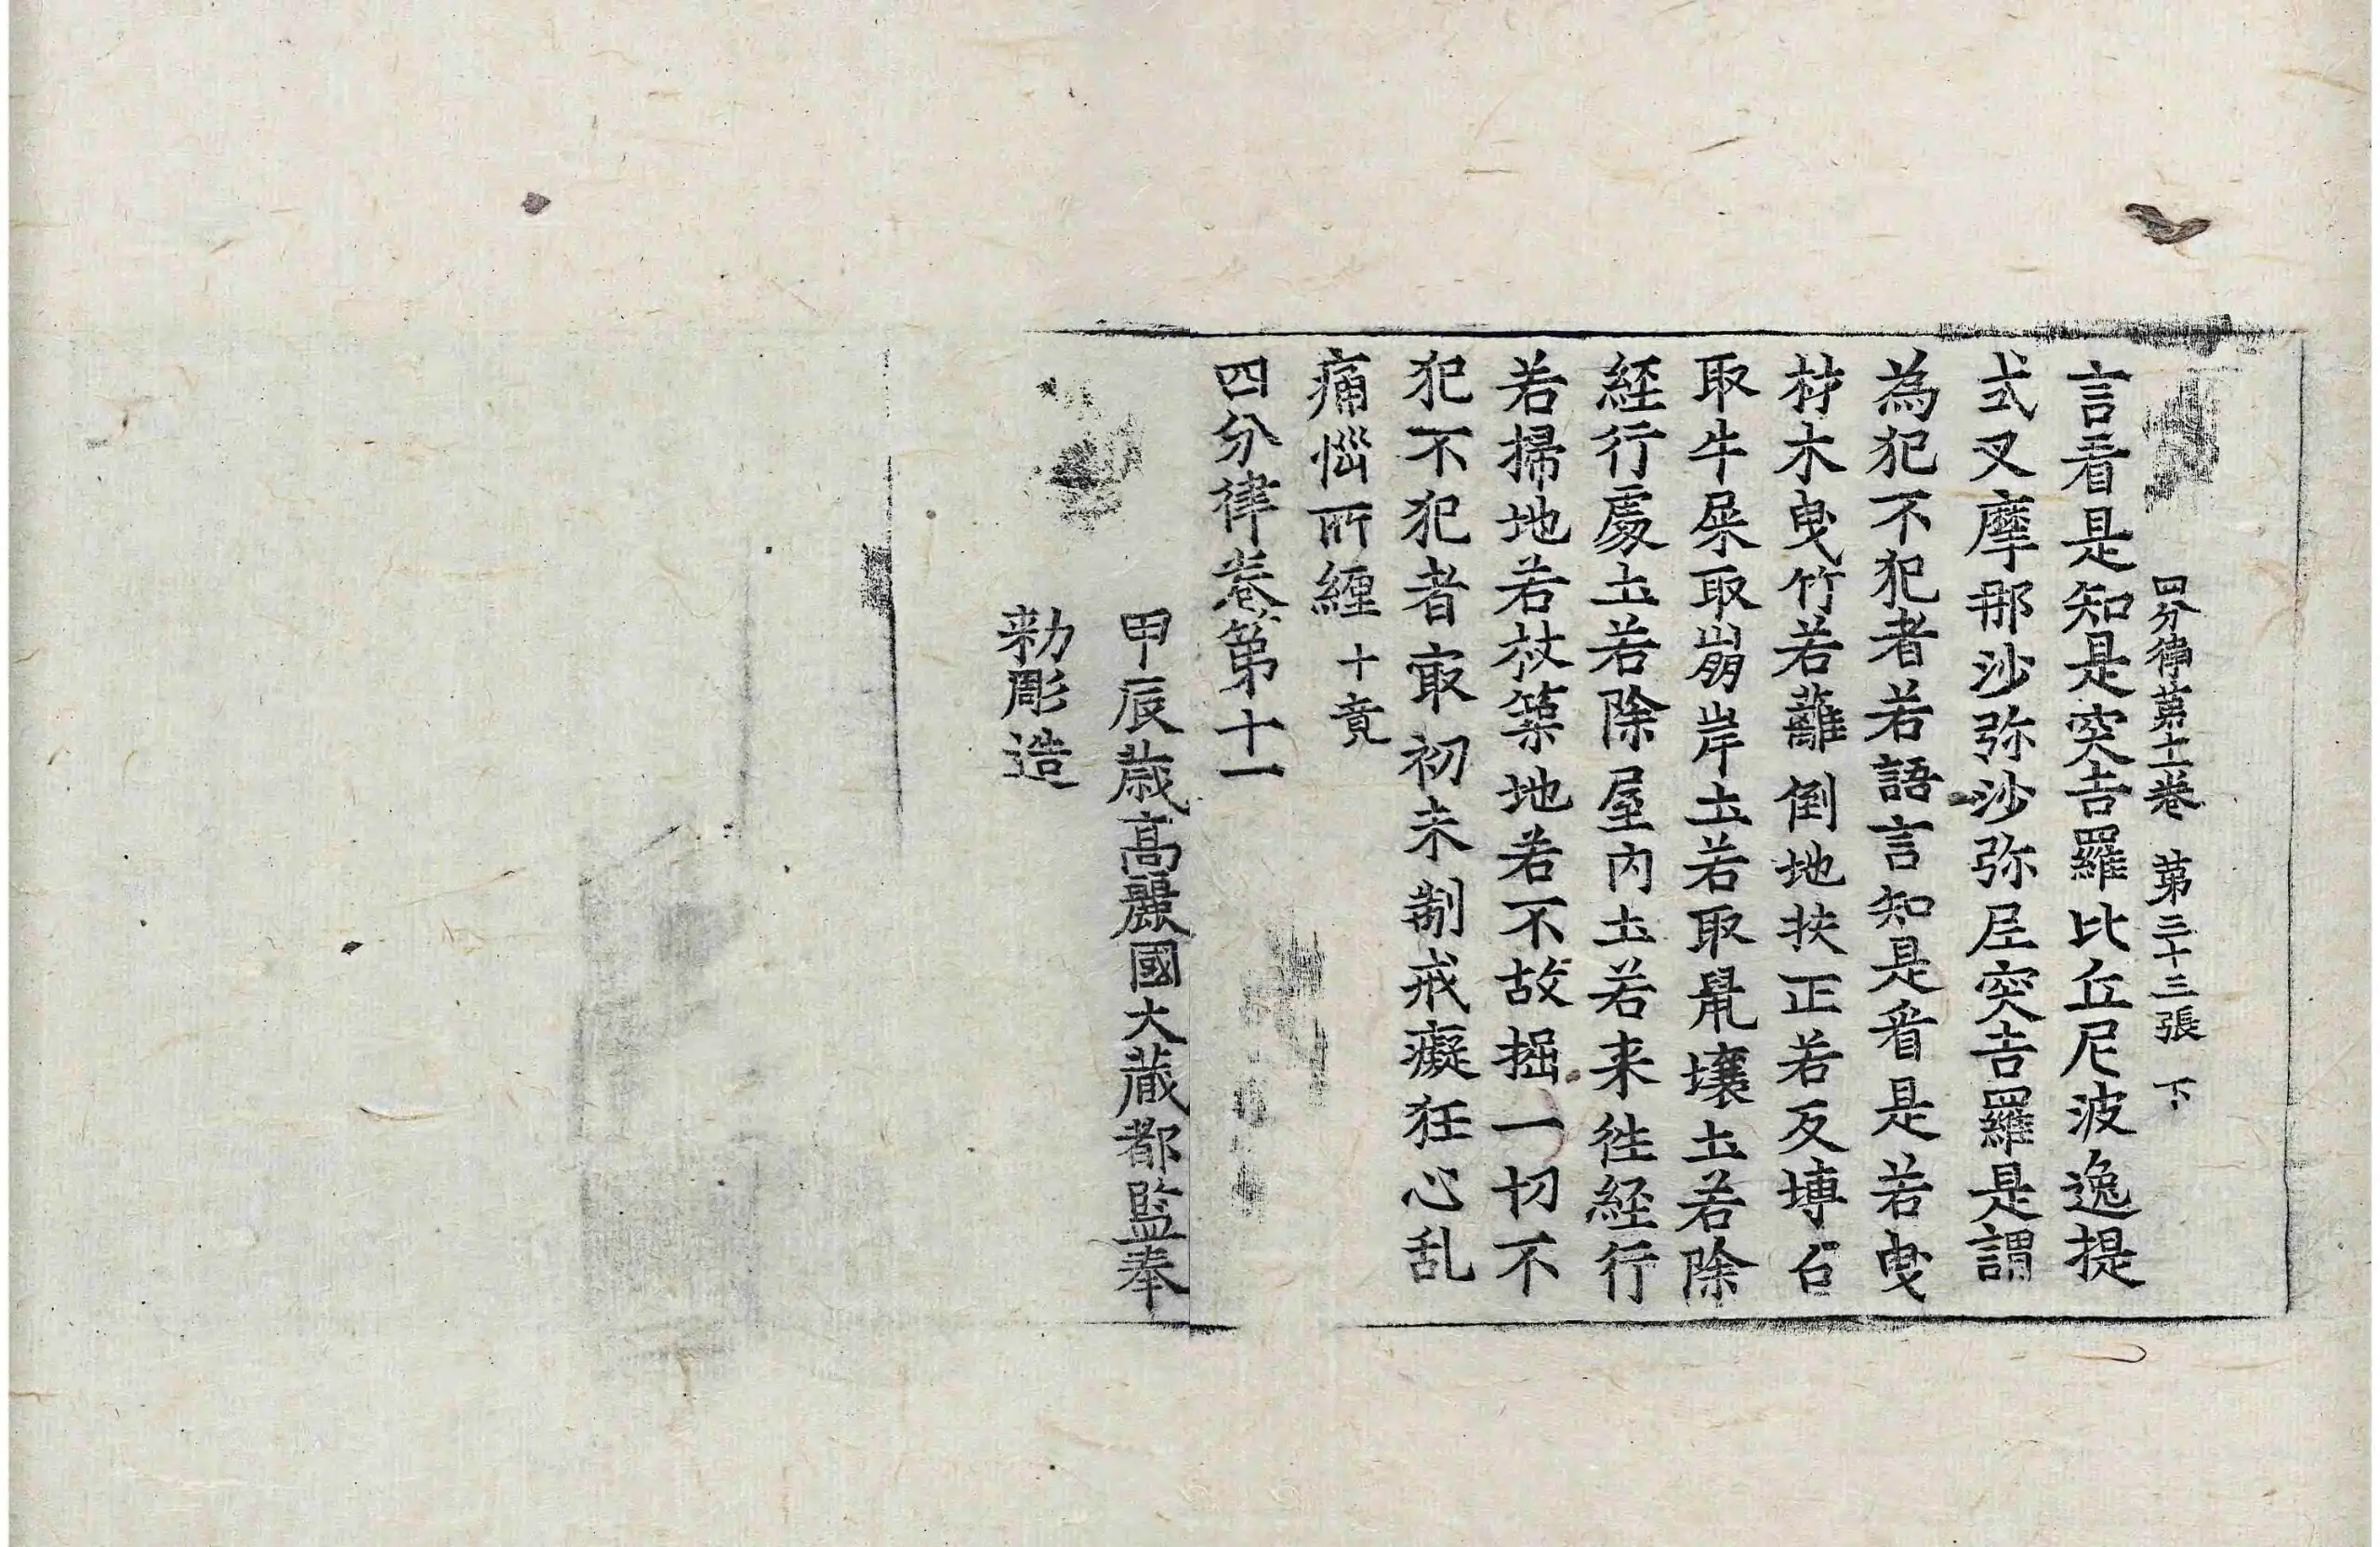 四分律第十一卷 第三十三張 下
言看是知是突吉羅比丘尼波逸提
式叉摩那沙弥沙弥尼突吉羅是謂
為犯不犯者若語言知是看是若曳
材木曳竹若蘺倒地扶正若反塼石
取牛屎取崩岸土若取鼠壤土若除
經行處土若除屋內土若来徃經行
若掃地若杖築地若不故掘一切不
犯不犯者㝡初未制戒癡狂心乱
痛惱所纏 十竟
四分律卷第十一
甲辰歲高麗國大藏都監奉
勑彫造